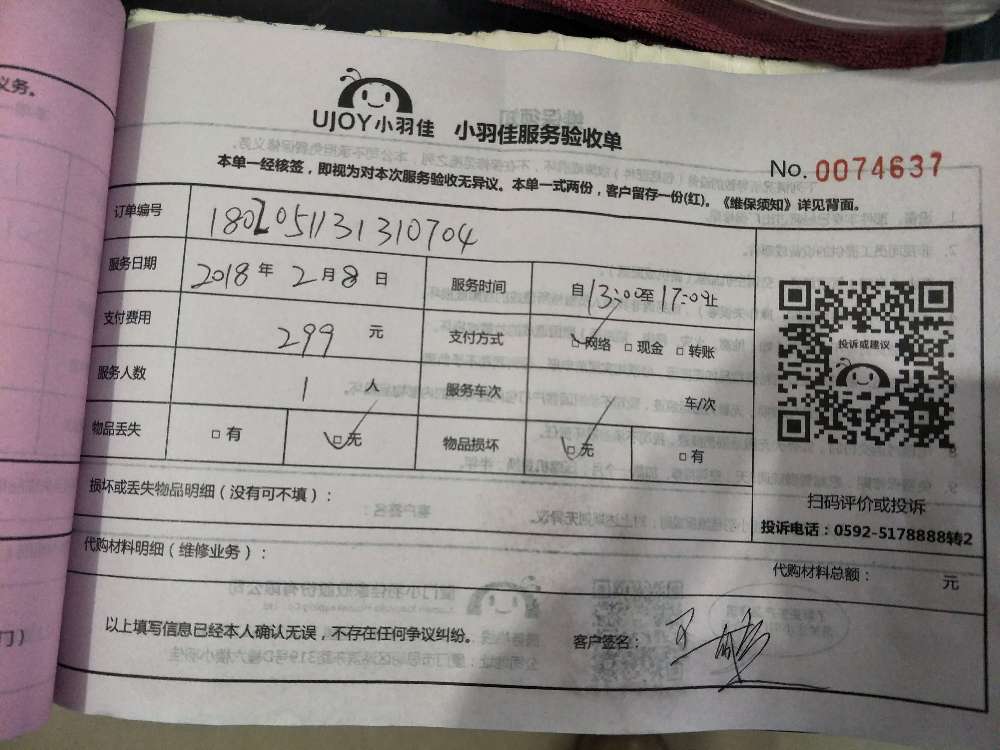 义务。
UJOY小羽佳 小羽佳服务验收单
No. 0074637
本单一经核签，即视为对本次服务验收无异议。本单一式两份，客户留存一份(红)。《维保须知》详见背面。
订单编号 1802051131310704
服务日期 2018 年 2 月 8 日 服务时间 自 13:00 至 17:00 止
支付费用 299 元 支付方式 网络 现金 转账
服务人数 1 人 服务车次 车/次
物品丢失 有 无 物品损坏 无 有
投诉或建议
扫码评价或投诉
投诉电话：0592-5178888转2
损坏或丢失物品明细（没有可不填）：
代购材料明细（维修业务）：
代购材料总额： 元
以上填写信息已经本人确认无误，不存在任何争议纠纷。 客户签名：
门）